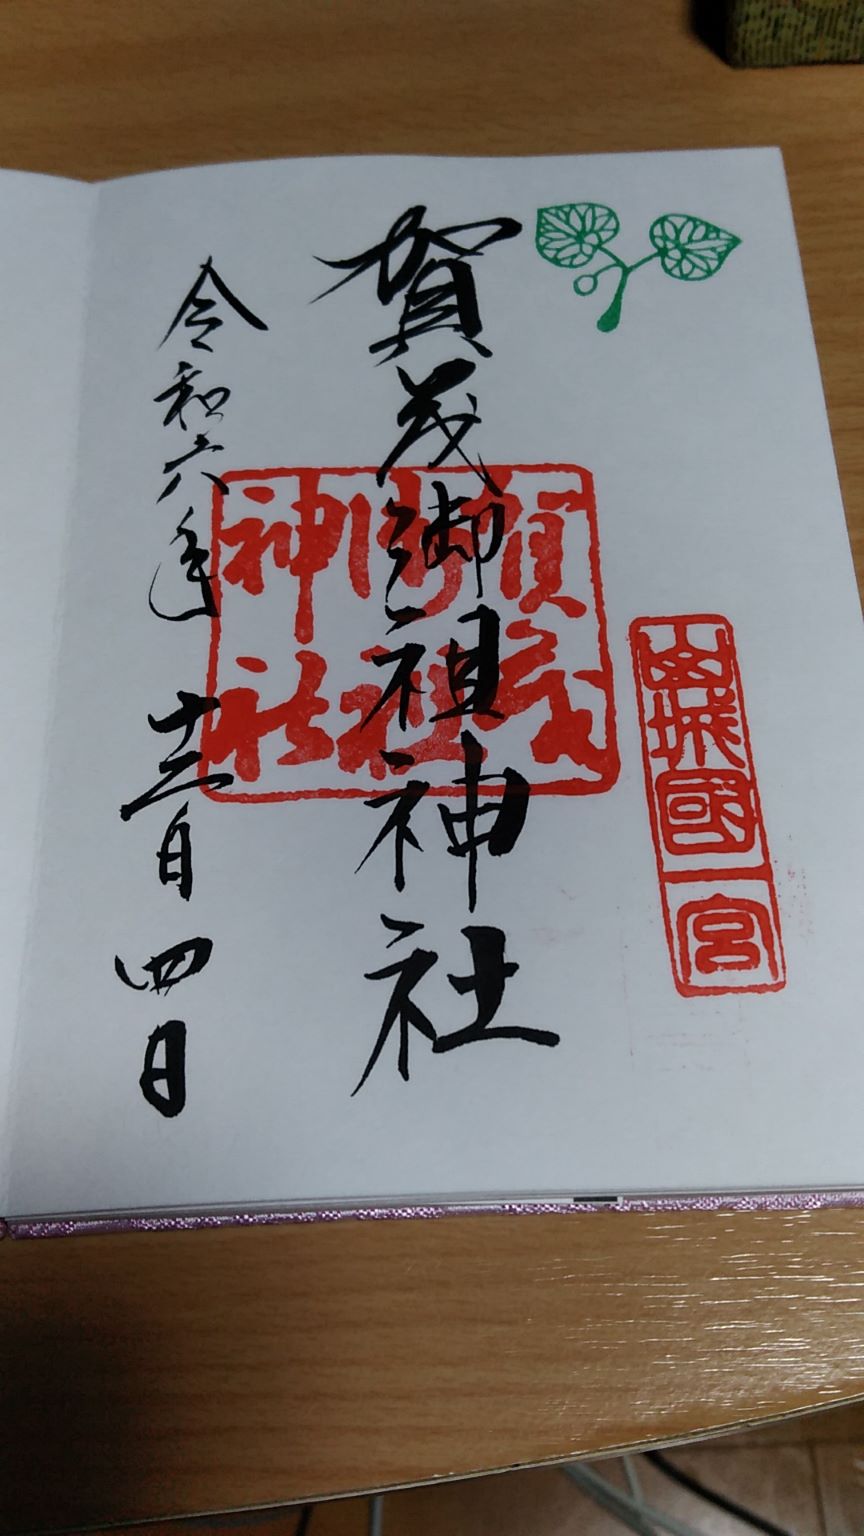 山城國一宮
賀茂御祖神社
賀茂御祖神社
令和六年十二月四日